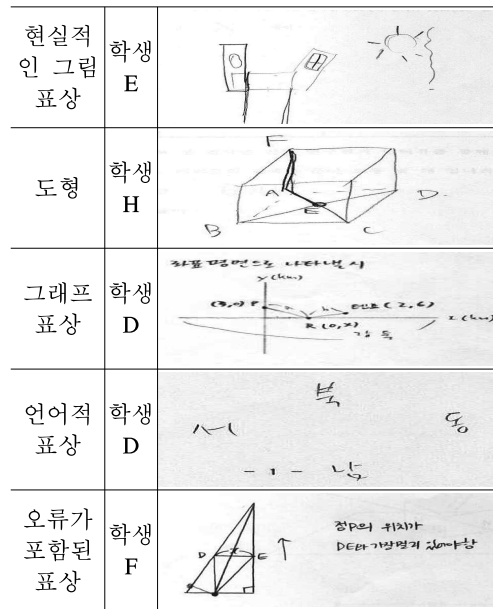 현실적
인 그림
표상
학생
E
도형
학생
H
F
A
D
E
B
C
그래프
표상
학생
D
좌표평면으로 나타낼 시
y(km)
텐트(2,6)
R(0,x)
x(km)
강 둑
언어적
표상
학생
D
북
서
동
- 1 - 남
오류가
포함된
표상
학생
F
D
x
E
점P의 위치가
DE와 가장멀리 있어야함